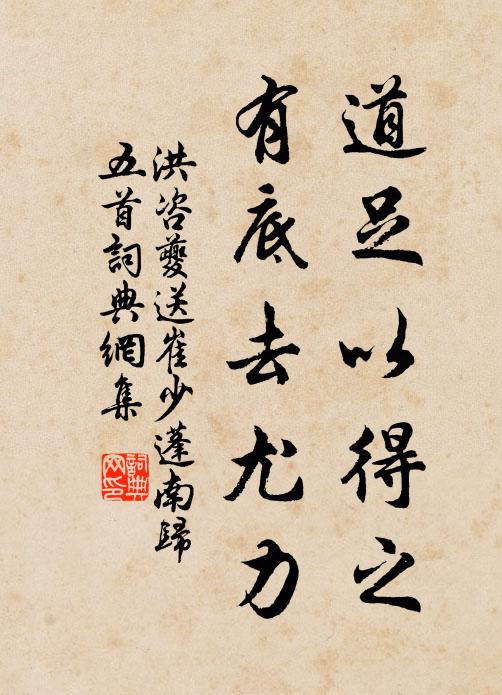 道足以得之
有底去尤力
洪咨夔送崔少蓬南歸
五首詞典網集
詞典
网印